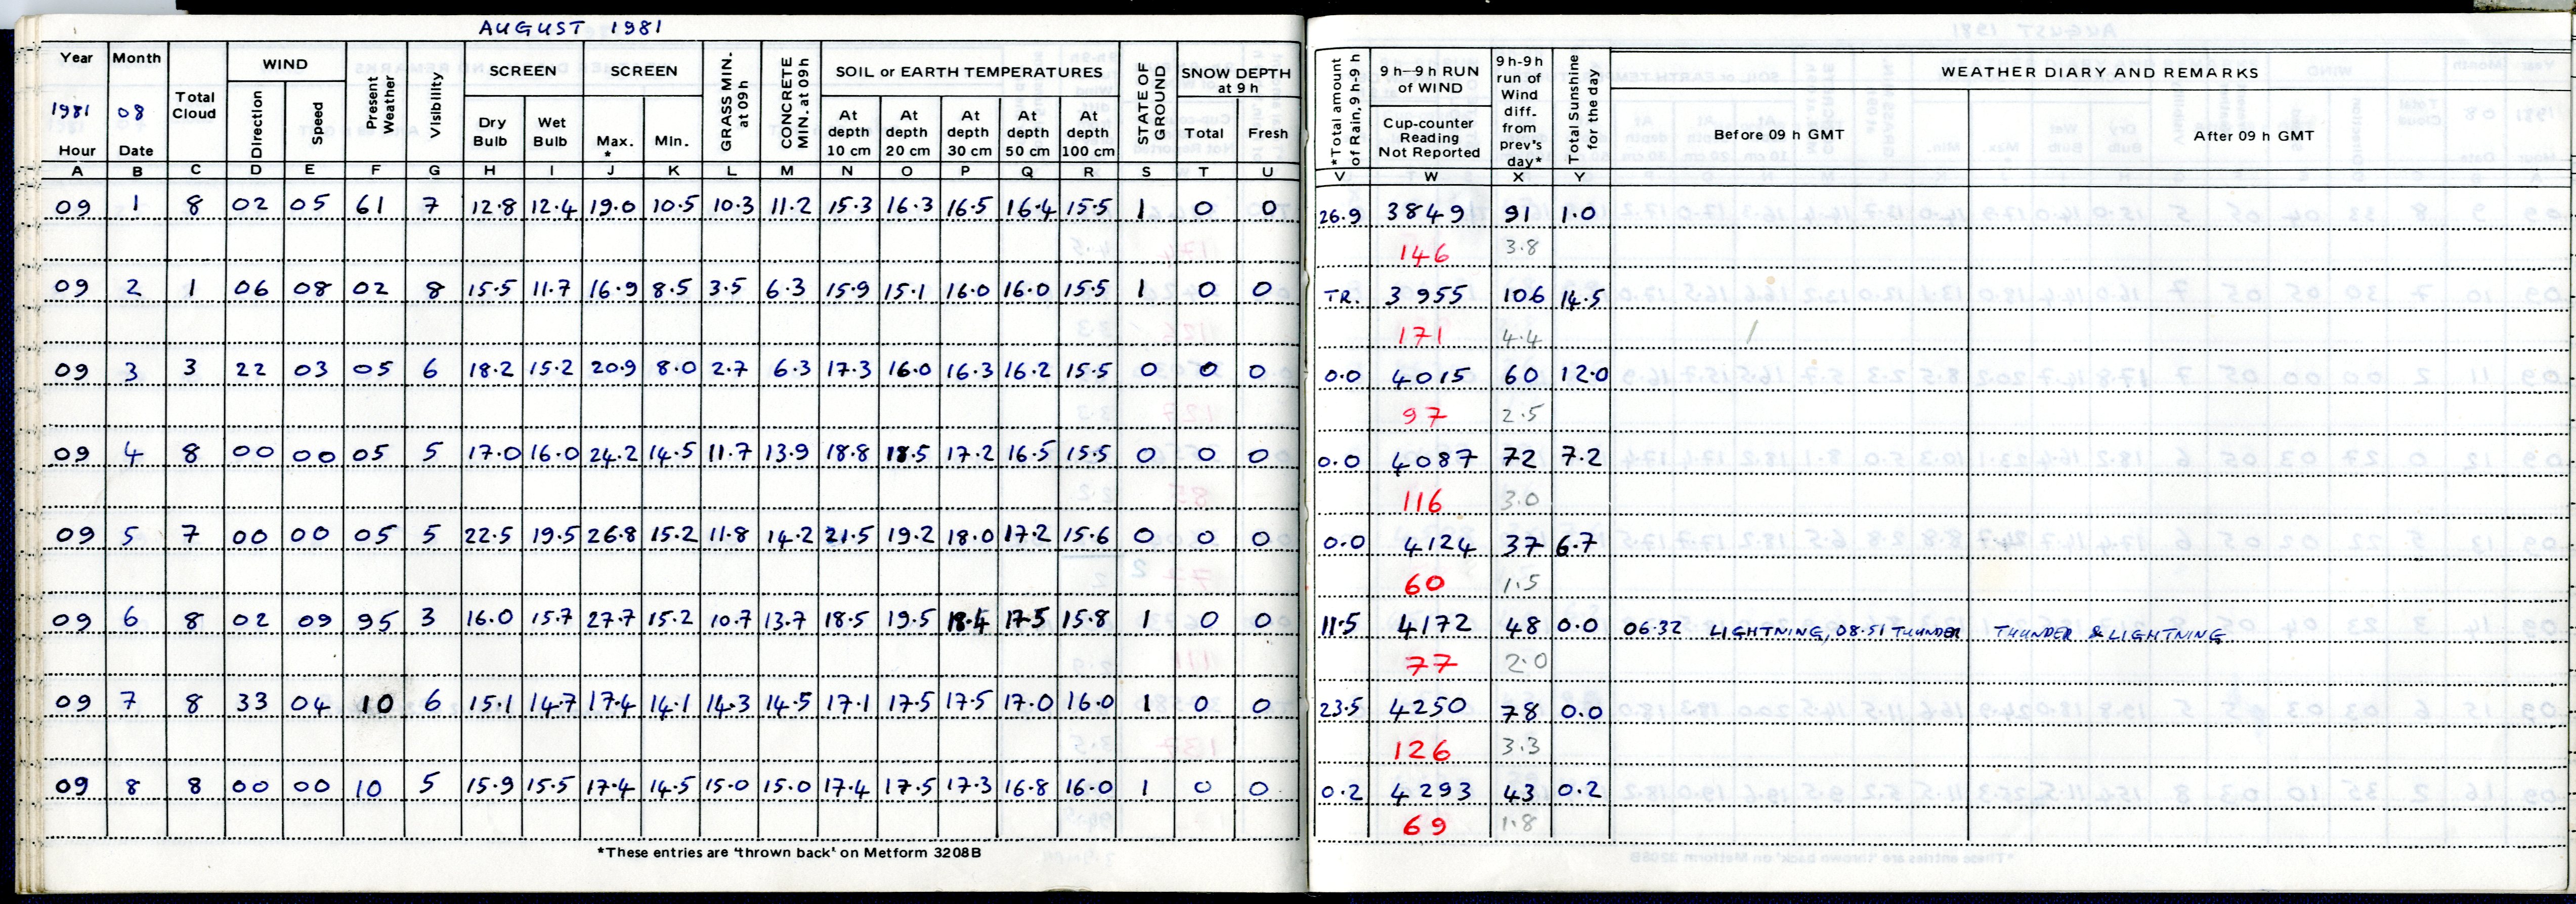 AUGUST 1981
Year Month Total Cloud WIND Present Weather Visibility SCREEN SCREEN GRASS MIN. at 09h CONCRETE MIN. at 09h SOIL or EARTH TEMPERATURES STATE OF GROUND SNOW DEPTH at 9 h *Total amount of Rain, 9 h-9 h 9 h–9 h RUN of WIND 9h-9h run of Wind diff. from prev's day* Total Sunshine for the day WEATHER DIARY AND REMARKS
1981 08 Direction Speed Dry Bulb Wet Bulb Max. * Min. At depth 10 cm At depth 20 cm At depth 30 cm At depth 50 cm At depth 100 cm Total Fresh Cup-counter Reading Not Reported Before 09 h GMT After 09 h GMT
Hour Date
A B C D E F G H I J K L M N O P Q R S T U V W X Y
09 1 8 02 05 61 7 12.8 12.4 19.0 10.5 10.3 11.2 15.3 16.3 16.5 16.4 15.5 1 0 0 26.9 3849 91 1.0
146 3.8
09 2 1 06 08 02 8 15.5 11.7 16.9 8.5 3.5 6.3 15.9 15.1 16.0 16.0 15.5 1 0 0 TR. 3955 106 14.5
171 4.4
09 3 3 22 03 05 6 18.2 15.2 20.9 8.0 2.7 6.3 17.3 16.0 16.3 16.2 15.5 0 0 0 0.0 4015 60 12.0
97 2.5
09 4 8 00 00 05 5 17.0 16.0 24.2 14.5 11.7 13.9 18.8 18.5 17.2 16.5 15.5 0 0 0 0.0 4087 72 7.2
116 3.0
09 5 7 00 00 05 5 22.5 19.5 26.8 15.2 11.8 14.2 21.5 19.2 18.0 17.2 15.6 0 0 0 0.0 4124 37 6.7
60 1.5
09 6 8 02 09 95 3 16.0 15.7 27.7 15.2 10.7 13.7 18.5 19.5 18.4 17.5 15.8 1 0 0 11.5 4172 48 0.0 06.32 LIGHTNING, 08.51 THUNDER THUNDER & LIGHTNING
77 2.0
09 7 8 33 04 10 6 15.1 14.7 17.4 14.1 14.3 14.5 17.1 17.5 17.5 17.0 16.0 1 0 0 23.5 4250 78 0.0
126 3.3
09 8 8 00 00 10 5 15.9 15.5 17.4 14.5 15.0 15.0 17.4 17.5 17.3 16.8 16.0 1 0 0 0.2 4293 43 0.2
69 1.8
*These entries are 'thrown back' on Metform 3208B